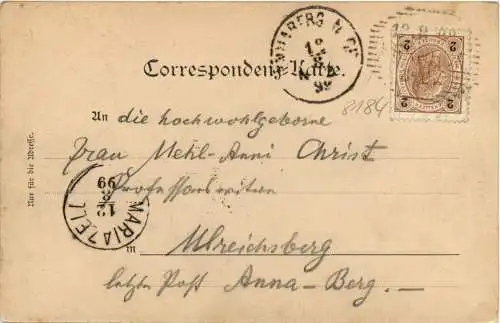 ANNABERG N. OE.
12 8 99
2 2
2 2
Correspondenz-Karte.
8184
An die hochwohlgeborne
Frau Mehl-Anni Christ
Professorswitwe
MARIAZELL
12 8 99
in Ulreichsberg
letzte Post Anna-Berg. —
Nur für die Adresse.